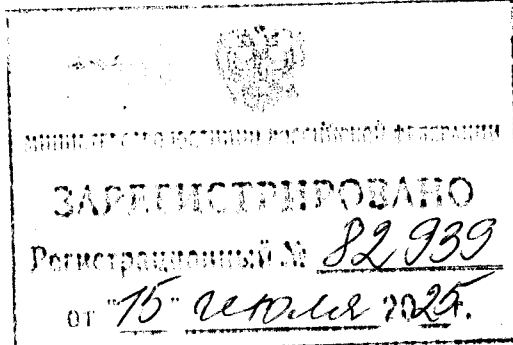 МИНИСТЕРСТВО ЮСТИЦИИ РОССИЙСКОЙ ФЕДЕРАЦИИ
ЗАРЕГИСТРИРОВАНО
Регистрационный № 82939
от "15" июля 2025г.